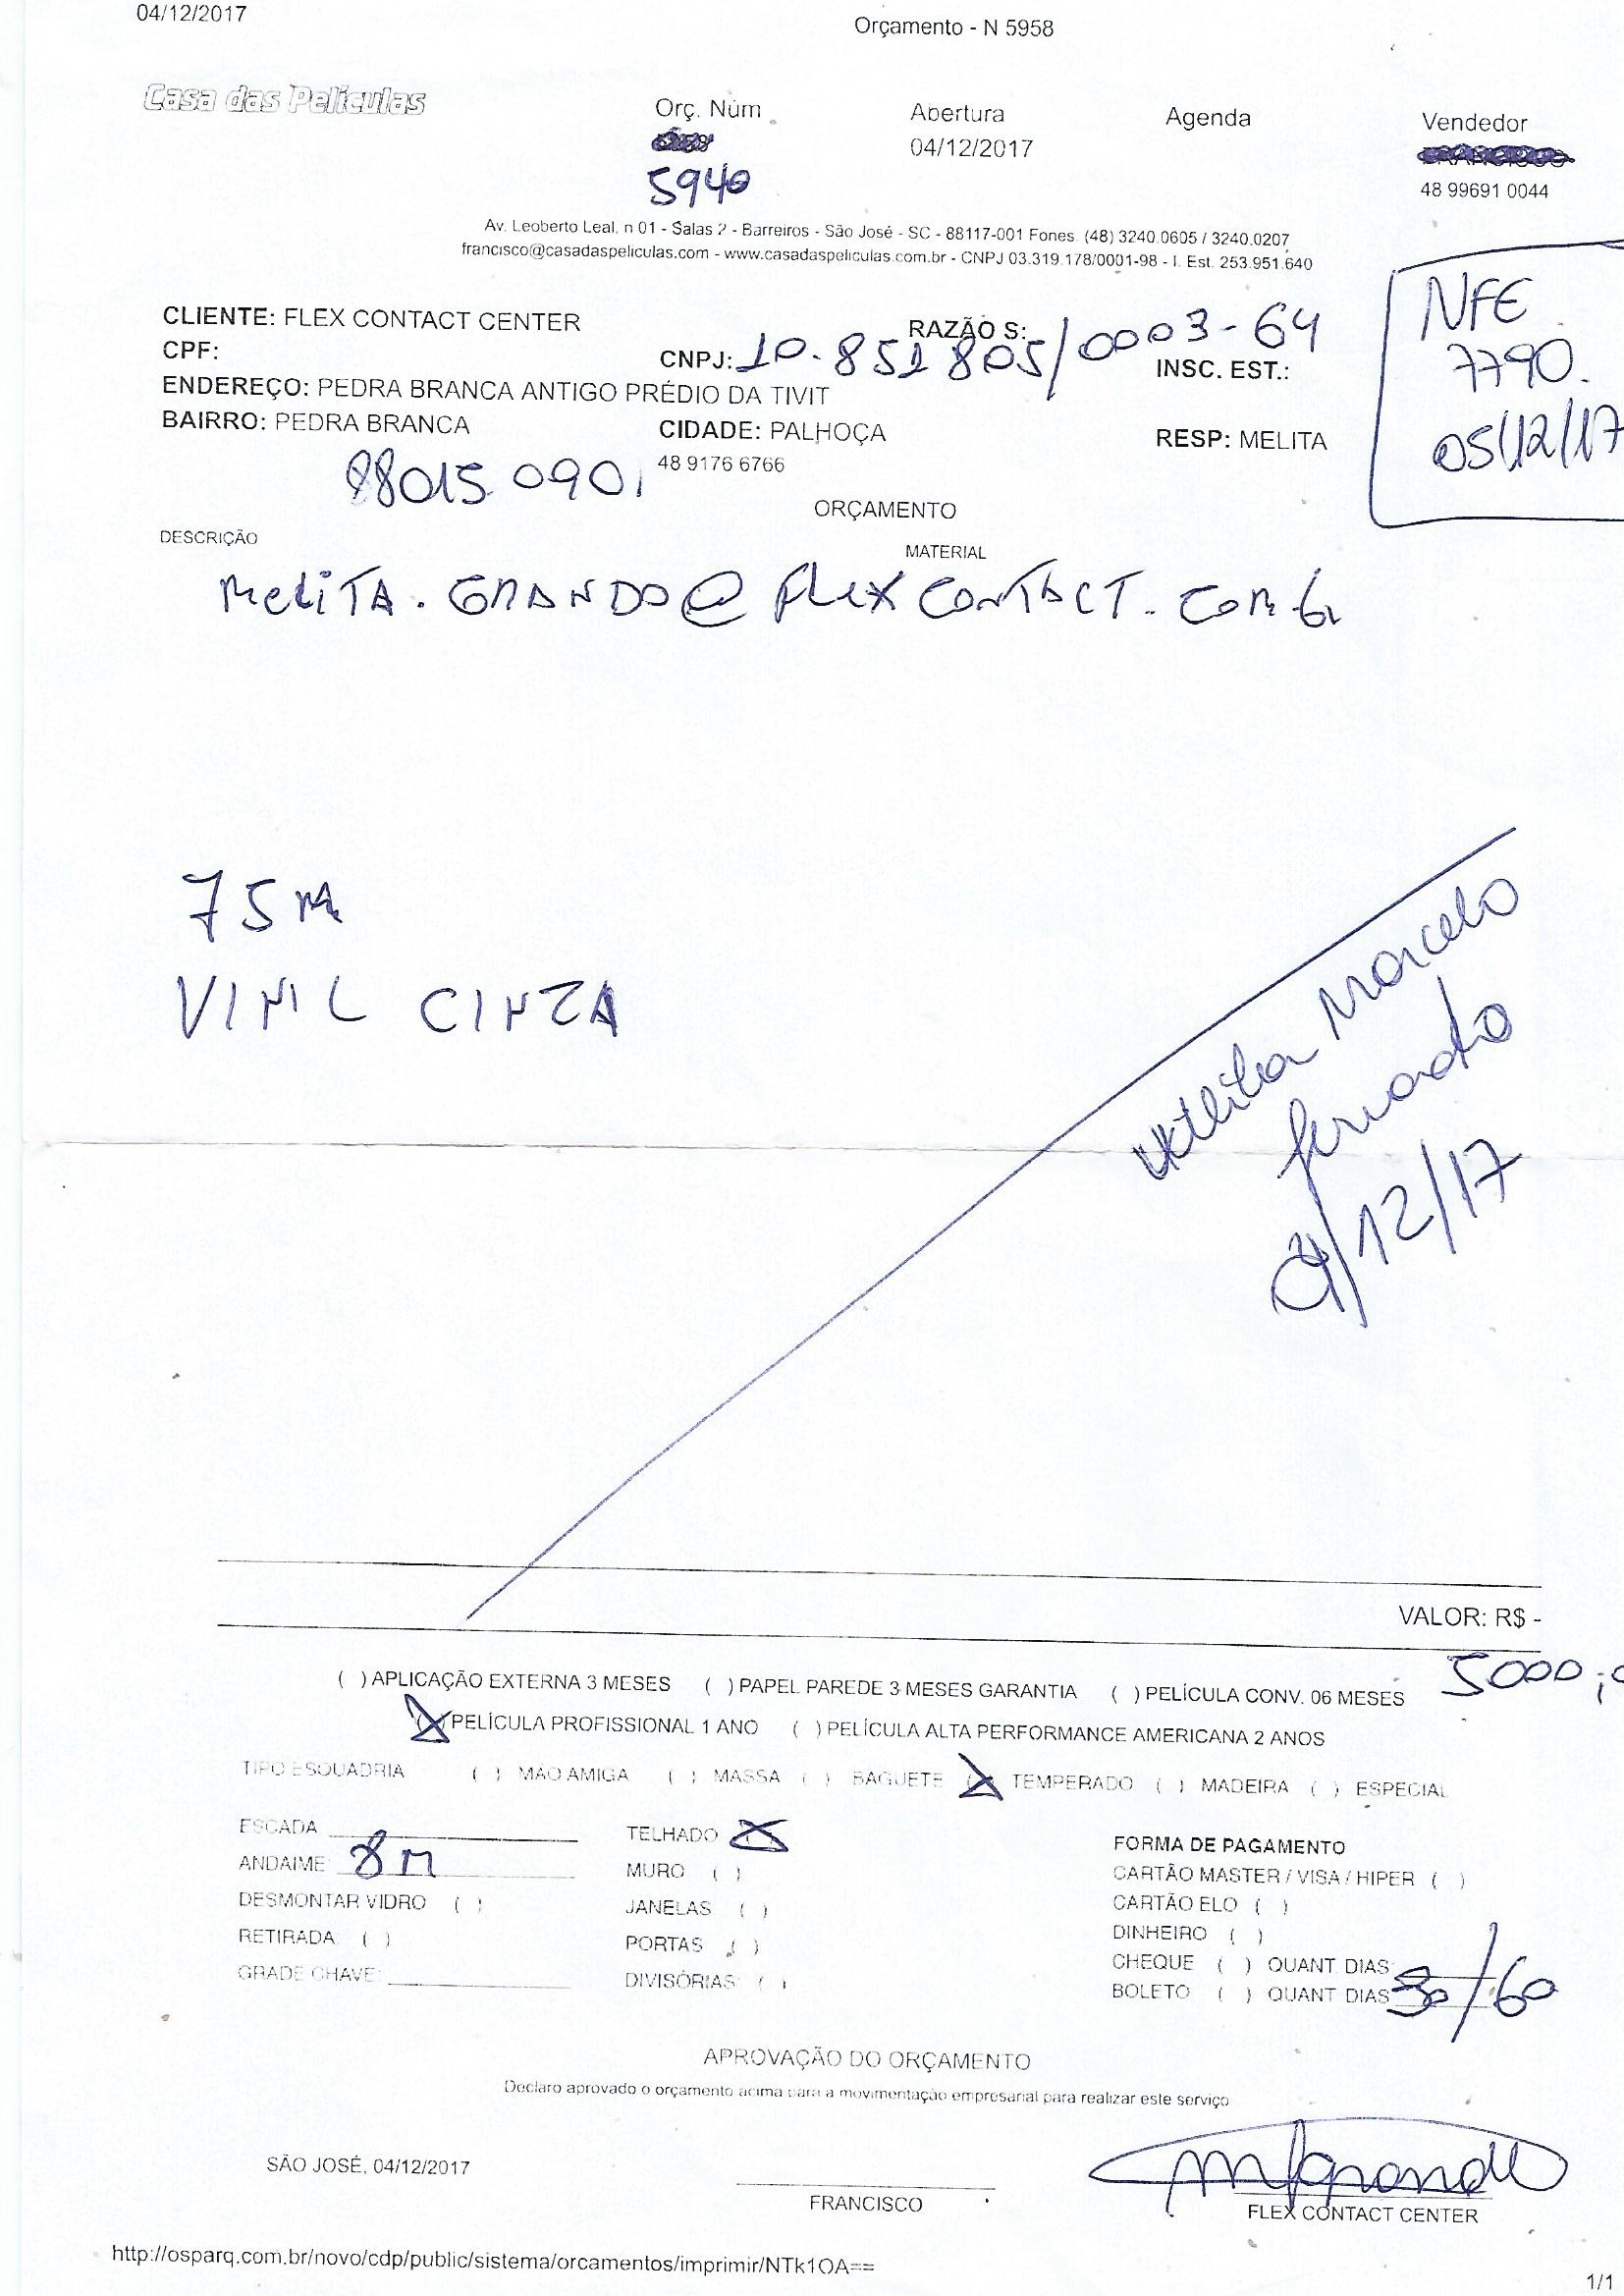 04/12/2017
Orçamento - N 5958
Casa das Películas
Orç. Núm
Abertura
Agenda
Vendedor
5940
04/12/2017
48 99691 0044
Av. Leoberto Leal, n 01 - Salas 2 - Barreiros - São José - SC - 88117-001 Fones. (48) 3240.0605 / 3240.0207
francisco@casadaspeliculas.com - www.casadaspeliculas.com.br - CNPJ 03.319.178/0001-98 - I. Est. 253.951.640
NFE
7790.
05/12/17
CLIENTE: FLEX CONTACT CENTER
RAZÃO S:
CPF:
CNPJ: 10.851805/0003-64
INSC. EST.:
ENDEREÇO: PEDRA BRANCA ANTIGO PRÉDIO DA TIVIT
BAIRRO: PEDRA BRANCA
CIDADE: PALHOÇA
RESP: MELITA
88015 090
48 9176 6766
ORÇAMENTO
DESCRIÇÃO
MATERIAL
MELITA.GRANDO@FLEXCONTACT.COM.br
75M
VINIL CINZA
Marcelo
/12/17
VALOR: R$ -
5000,
( ) APLICAÇÃO EXTERNA 3 MESES ( ) PAPEL PAREDE 3 MESES GARANTIA ( ) PELÍCULA CONV. 06 MESES
(X) PELÍCULA PROFISSIONAL 1 ANO ( ) PELÍCULA ALTA PERFORMANCE AMERICANA 2 ANOS
TIPO ESQUADRIA ( ) MÃO AMIGA ( ) MASSA ( ) BAGUETE (X) TEMPERADO ( ) MADEIRA ( ) ESPECIAL
ESCADA
TELHADO (X)
FORMA DE PAGAMENTO
ANDAIME: 8M
MURO ( )
CARTÃO MASTER / VISA / HIPER ( )
DESMONTAR VIDRO ( )
JANELAS ( )
CARTÃO ELO ( )
RETIRADA ( )
PORTAS ( )
DINHEIRO ( )
GRADE CHAVE:
DIVISÓRIAS ( )
CHEQUE ( ) QUANT DIAS
BOLETO ( ) QUANT DIAS 30/60
APROVAÇÃO DO ORÇAMENTO
Declaro aprovado o orçamento acima para a movimentação empresarial para realizar este serviço
SÃO JOSÉ, 04/12/2017
FRANCISCO
FLEX CONTACT CENTER
http://osparq.com.br/novo/cdp/public/sistema/orcamentos/imprimir/NTk1OA==
1/1